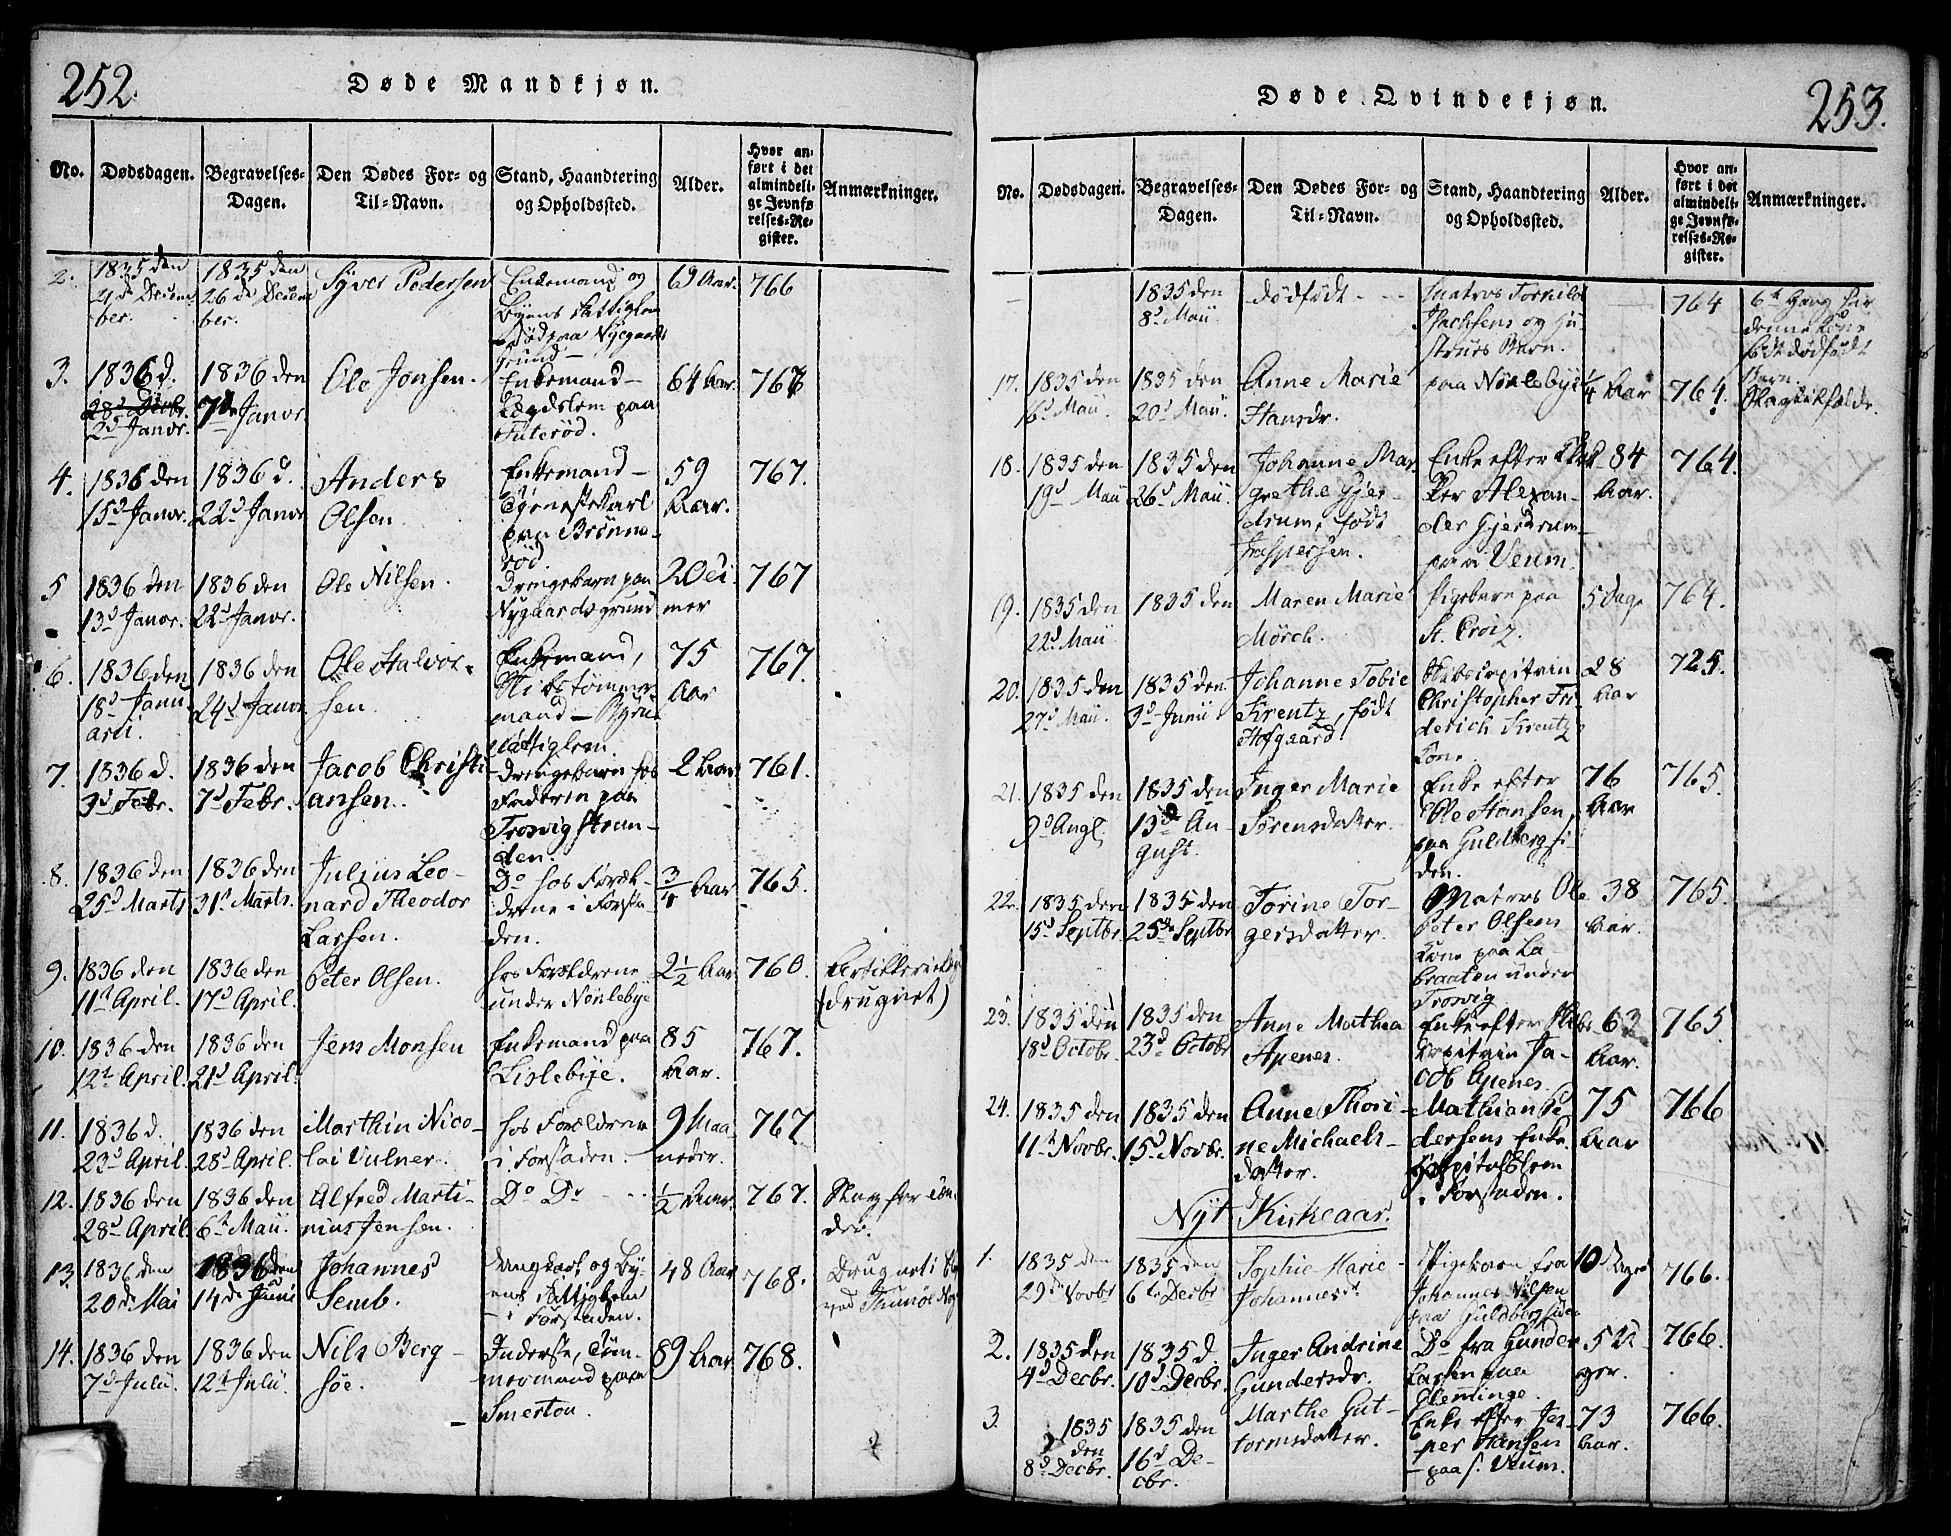 252.
Døde Mandkjøn.
No.
Dødsdagen.
Begravelses-
Dagen.
Den Dødes For- og
Til-Navn.
Stand, Haandtering
og Opholdssted.
Alder.
Hvor an-
ført i det
almindeli-
ge Jevnfø
relses-Re-
gister.
Anmærkninger.
2.
1835 den
21de Decem
ber.
1835 den
26de Decem
ber.
Syver Pedersen
Enkemand og
Byens Fattiglem
død paa Nygaards
Grund
69 Aar.
766
3.
1836 d.
28d Decbr.
2d Janvr.
1836 den
7de Janvr
Ole Jonsen.
Enkemand
Lægdslem paa
Tuterød.
64 Aar.
767
4.
1836 den
15d Janvr.
1836 d.
22d Janvr
Anders
Olsen
Enkemand
Tjenestekarl
paa Brønne-
rød.
59
Aar.
767.
5
1836 den
13d Janvr.
1836 den
22d Janvr.
Ole Nilsen.
Drengebarn paa
Nygaardsgrund
2 Oei
mer
767
6.
1836 den
18d Janu
arii.
1836 den
24d Janvr
Ole Halvor-
sen
Enkemand,
Skibstømmer-
mand - Byens
Fattiglem.
75
Aar
767.
7.
1836 d.
3d Febr.
1836 den
7d Febr.
Jacob Christi
ansen.
Drengebarn hos
Faderen paa
Trosvigstran-
den.
2 Aar
761.
8.
1836 den
25d Marts
1836 den
31t Marts.
Julius Leo-
nard Theodor
Larsen.
Do hos Foræl-
drene i Forsta
den.
3/4 Aar
765.
9.
1836 den
11t April.
1836 den
17d April.
Peter Olsen.
hos Forældrene
under Nørlebye
2 1/2 Aar
760.
(drugnet)
10.
1836 den
12t April.
1836 den
21d April.
Jens Monsen
Enkemand paa
Lislebye.
85
Aar.
767.
11.
1836 d.
23d April.
1836 den
28d April.
Marthin Nico-
lai Vulner.
hos Forældrene
i Forstaden.
9 Maa-
neder.
767
12.
1836 den
28d April.
1836 den
6t Maii.
Alfred Marti-
nius Jensen.
Do Do
1/2 Aar.
767.
13.
1836 den
20de Mai
1836 den
14de Juni
Johannes
Semb.
ens Fattiglem
i Forstaden.
48 Aar
768.
Drugnet i
ved
14.
1836 den
7d Julii.
1836 den
12t Julii.
Nils Berg-
søe.
Inderste, Tøm-
mermand paa
Smertou.
89 Aar.
768.
253.
Døde Qvindekjøn.
No.
Dødsdagen.
Begravelses-
Dagen.
Den Dødes For- og
Til-Navn.
Stand, Haandtering
og Opholdssted.
Alder.
Hvor an-
ført i det
almindeli-
ge Jevnfø-
relses-Re-
gister.
Anmærkninger.
1835 den
8d Maii
dødfødt
Matros Torkild
Isachsens og Hu-
struès Barn.
764
6te Gang har
denne Kone
født dødfødt
Barn.
17.
1835 den
16d Maii.
1835 den
20d Maii.
Anne Marie
Hansdr.
paa Nørlebye
1/4 Aar
764.
18.
1835 den
19d Maii
1835 den
26d Maii.
Johanne Mar-
grethe Gjer-
drum, født
Jaspersen.
Enke efter Klok
ker Alexan-
der Gjerdrum
paa Veum.
84
Aar.
764.
19.
1835 den
22d Maii
1835 den
Maren Marie
Mørch.
Pigebarn paa
St. Croix.
5 Dage
764.
20.
1835 den
27d Maii.
1835 den
3d Junii
Johanne Tobie
Kreutz, født
Hofgaard
Skibscapitain
Christopher Fri-
derich Kreutz
Kone.
28
Aar
725.
21.
1835 den
9d Augt.
1835 den
13de Au-
gust.
Inger Marie
Sørensdatter.
Enke efter
Ole Hansen
paa Guldbergsi-
den.
76
Aar
765.
22.
1835 den
15d Septbr.
1835 den
25de Septbr
Torine Tor-
gersdatter.
Matros Ole
Peter Olsens
Kone paa La
braaten under
Trosvig
38
Aar.
765.
23.
1835 den
18d Octobr.
1835 den
23d Octobr
Anne Mathea
Apenes.
Enke efter Skibs
Capitain Ja-
cob Apenes.
63
Aar.
765
24.
1835 den
11t Novbr.
1835 den
15d Novbr.
Anne Thori-
ne Michaels-
datter.
Mathian Pe
dersens Enke.
Hospitalslem
i Forstaden.
75
Aar
766
Nyt Kirkeaar.
1.
1835 den
29de Novbr
1835 den
6te Decbr
Sophie Marie
Johannesdr
Pigebarn fra
Johannes Nilsen
paa Guldbergsiden
10 Dage
766.
2.
1835 den
4d Decbr.
1835 d.
10d Decbr.
Inger Andrine
Gundersdr.
Do fra Gunder
Larsen paa
Glemminge.
5 U
ger.
766.
3.
1835
den
8d Decbr.
1835 den
16d De-
cbr.
Marthe Gut-
tormsdatter.
Enke efter Jes-
per Hansen
paa s. Veum.
73
Aar.
766.